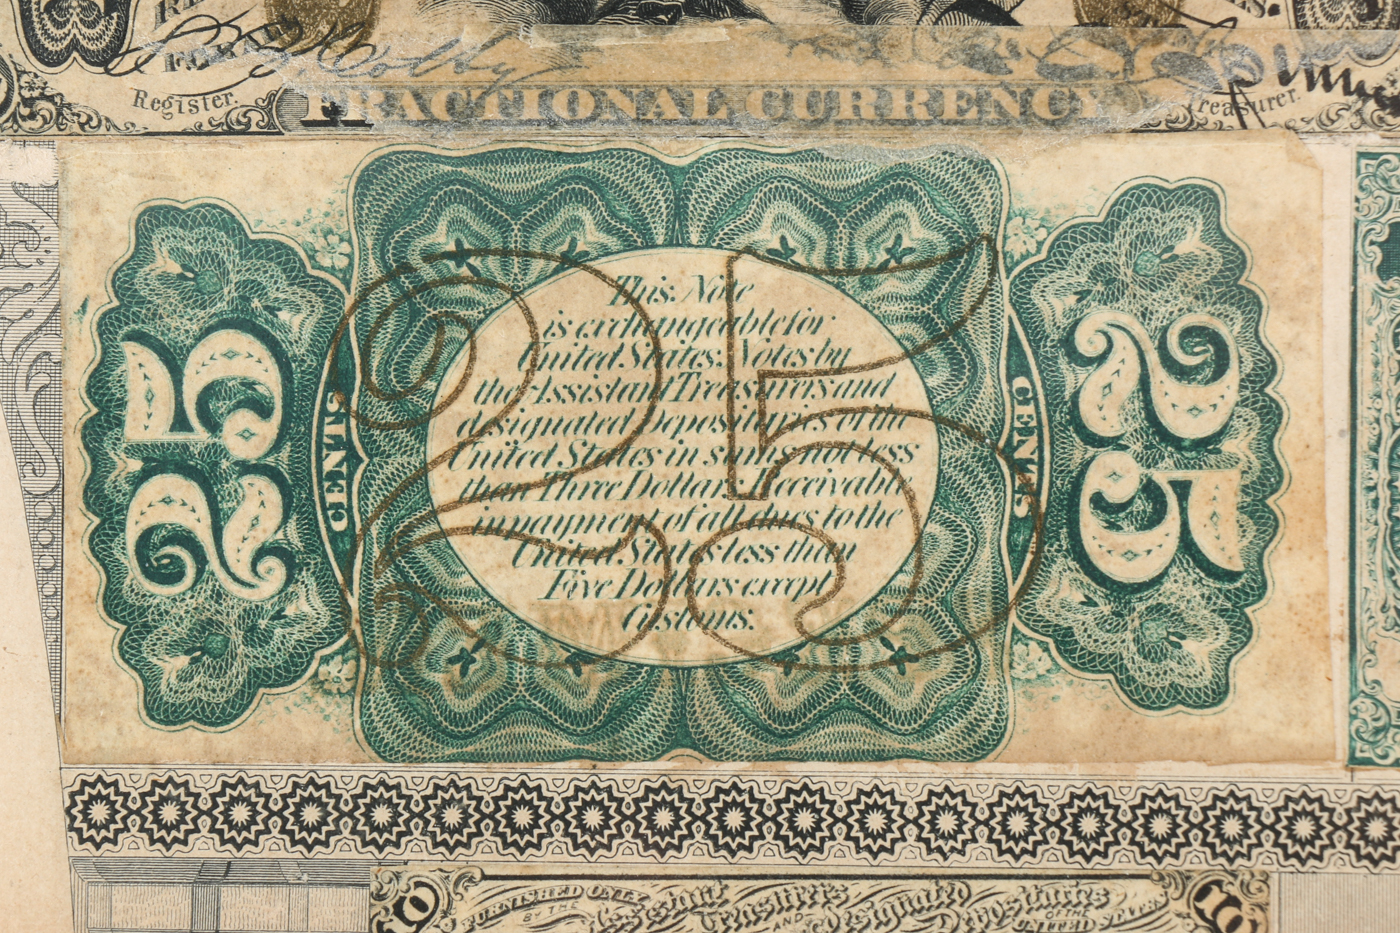 Colby
Register.
FRACTIONAL CURRENCY
Treasurer.
25
CENTS
25
This Note
is exchangeable for
United States Notes by
the Assistant Treasurers and
designated Depositaries of the
United States in sums not less
than Three Dollars. Receivable
in payment of all dues to the
United States less than
Five Dollars except
Customs.
CENTS
25
10
FURNISHED ONLY
BY THE
Assistant Treasurers
AND
Designated Depositaries
OF THE
UNITED STATES
10